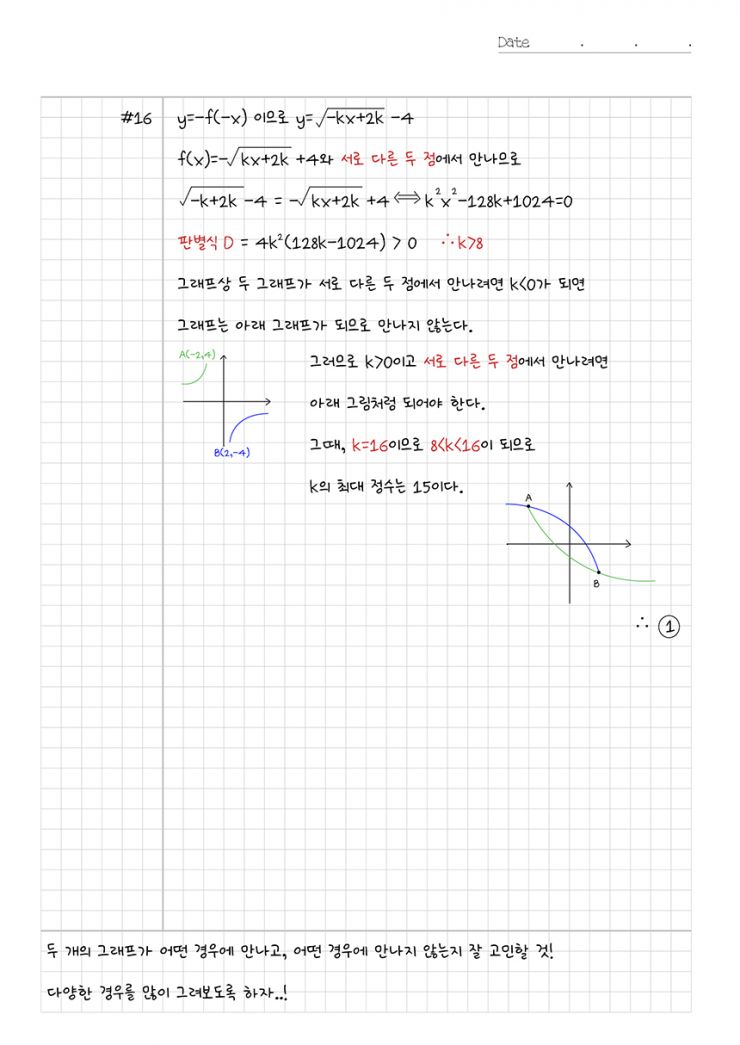 Date . . .
#16 y=-f(-x) 이므로 y=√(-kx+2k) -4
f(x)=-√(kx+2k) +4와 서로 다른 두 점에서 만나므로
√(-k+2k) -4 = -√(kx+2k) +4 ⟺ k²x²-128k+1024=0
판별식 D = 4k²(128k-1024) > 0 ∴k>8
그래프상 두 그래프가 서로 다른 두 점에서 만나려면 k<0가 되면
그래프는 아래 그래프가 되므로 만나지 않는다.
A(-2,4)
B(2,-4)
그러므로 k>0이고 서로 다른 두 점에서 만나려면
아래 그림처럼 되어야 한다.
그때, k=16이므로 8<k<16이 되므로
k의 최대 정수는 15이다.
A
B
∴ ①
두 개의 그래프가 어떤 경우에 만나고, 어떤 경우에 만나지 않는지 잘 고민할 것!
다양한 경우를 많이 그려보도록 하자..!